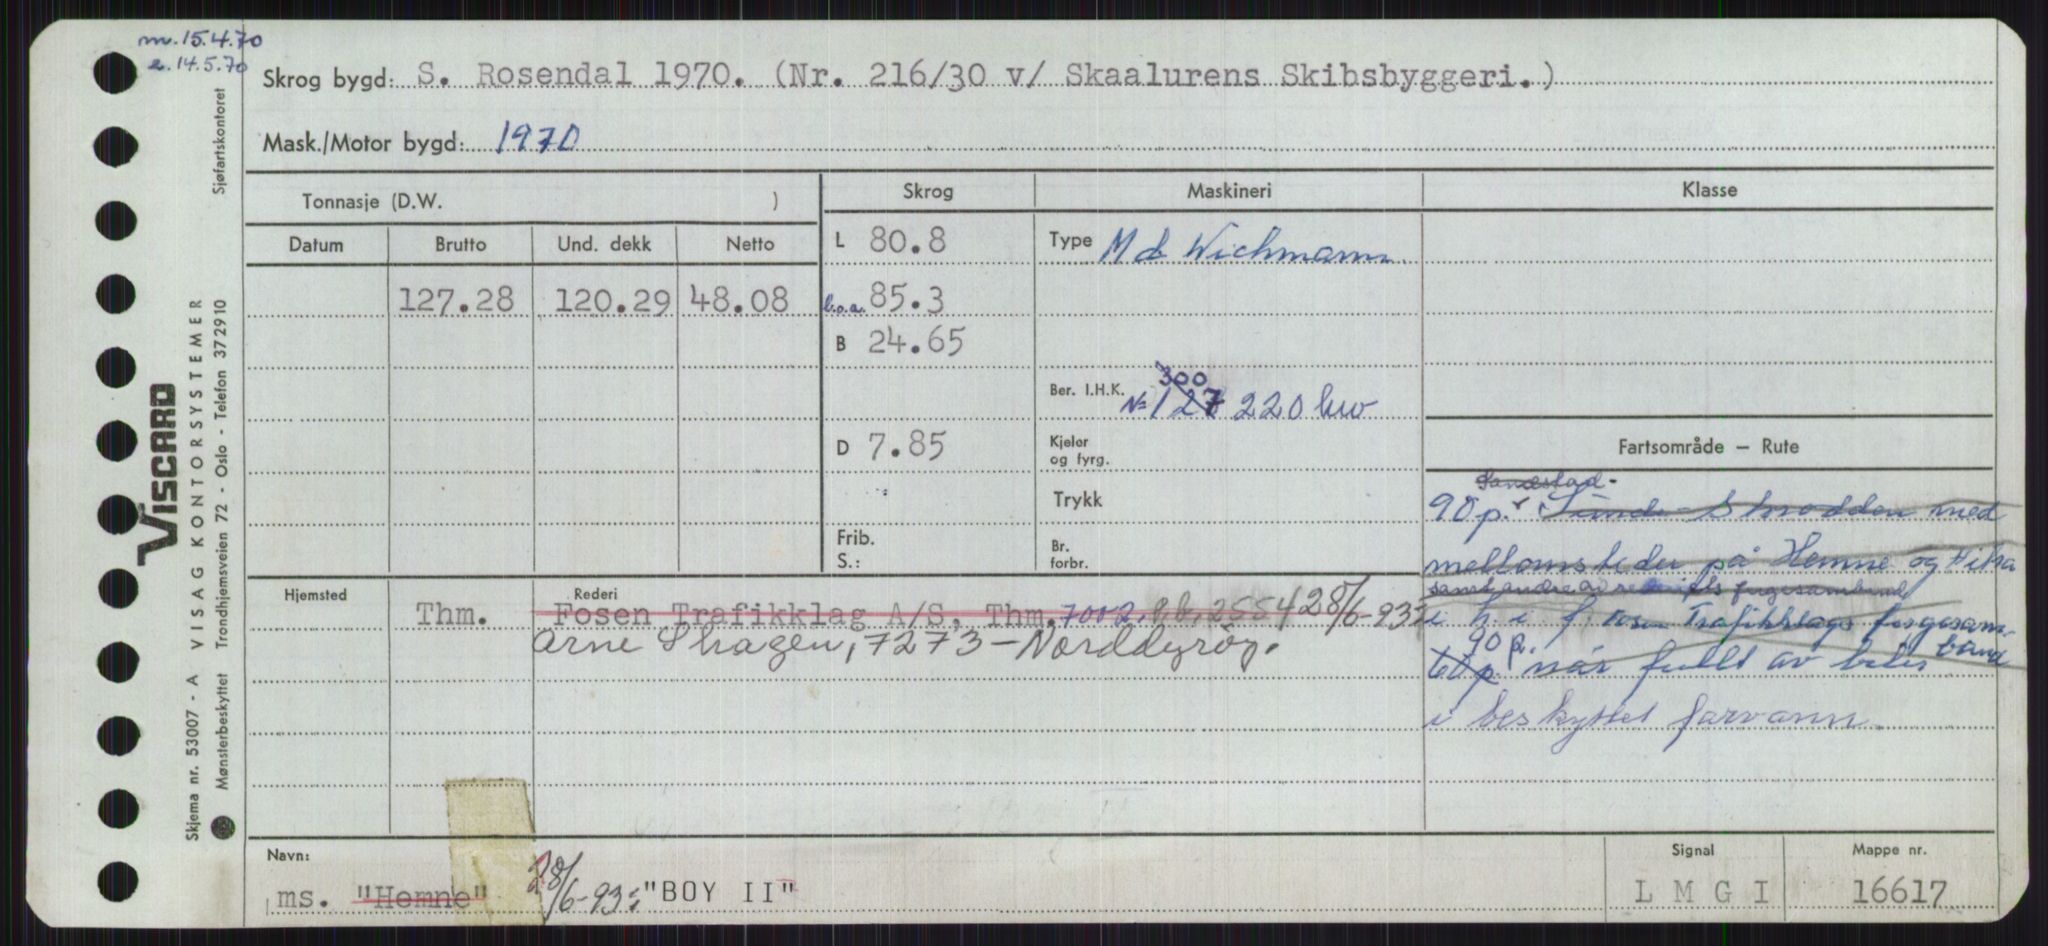 m. 15.4.70
e. 14.5.70
Skrog bygd: S. Rosendal 1970. (Nr. 216/30 v/ Skaalurens Skibsbyggeri.)
Mask./Motor bygd: 1970
Tonnasje (D.W. )
Skrog
Maskineri
Klasse
Datum
Brutto
Und. dekk
Netto
L 80.8
Type Md Wichmann
127.28
120.29
48.08
l.o.a. 85.3
B 24.65
300
Ber. I.H.K. N= 127 220 kw
D 7.85
Kjeler
og fyrg.
Fartsområde — Rute
Trykk
Sandstad-
90 p. Sunde - Skrodden med
Frib.
S.:
Br.
forbr.
mellomsteder på Hemne og Hitra
samt andre av fergesamband
Hjemsted
Rederi
Thm.
Fosen Trafikklag A/S, Thm. 7002, 2554 28/6-93:
i h i f. Fosen Trafikklags fergesam-
band
Arne Skagen, 7273 - Norddyrøy.
90 p.
60 p. når fullt av biler
i beskyttet farvann.
Navn:
ms. "Hemne" 28/6-93: "BOY II"
Signal
L M G I
Mappe nr.
16617
VISCARD
Skjema nr. 53007 - A VISAG KONTORSYSTEMER
Mønsterbeskyttet Trondhjemsveien 72 - Oslo - Telefon 372910
Sjøfartskontoret